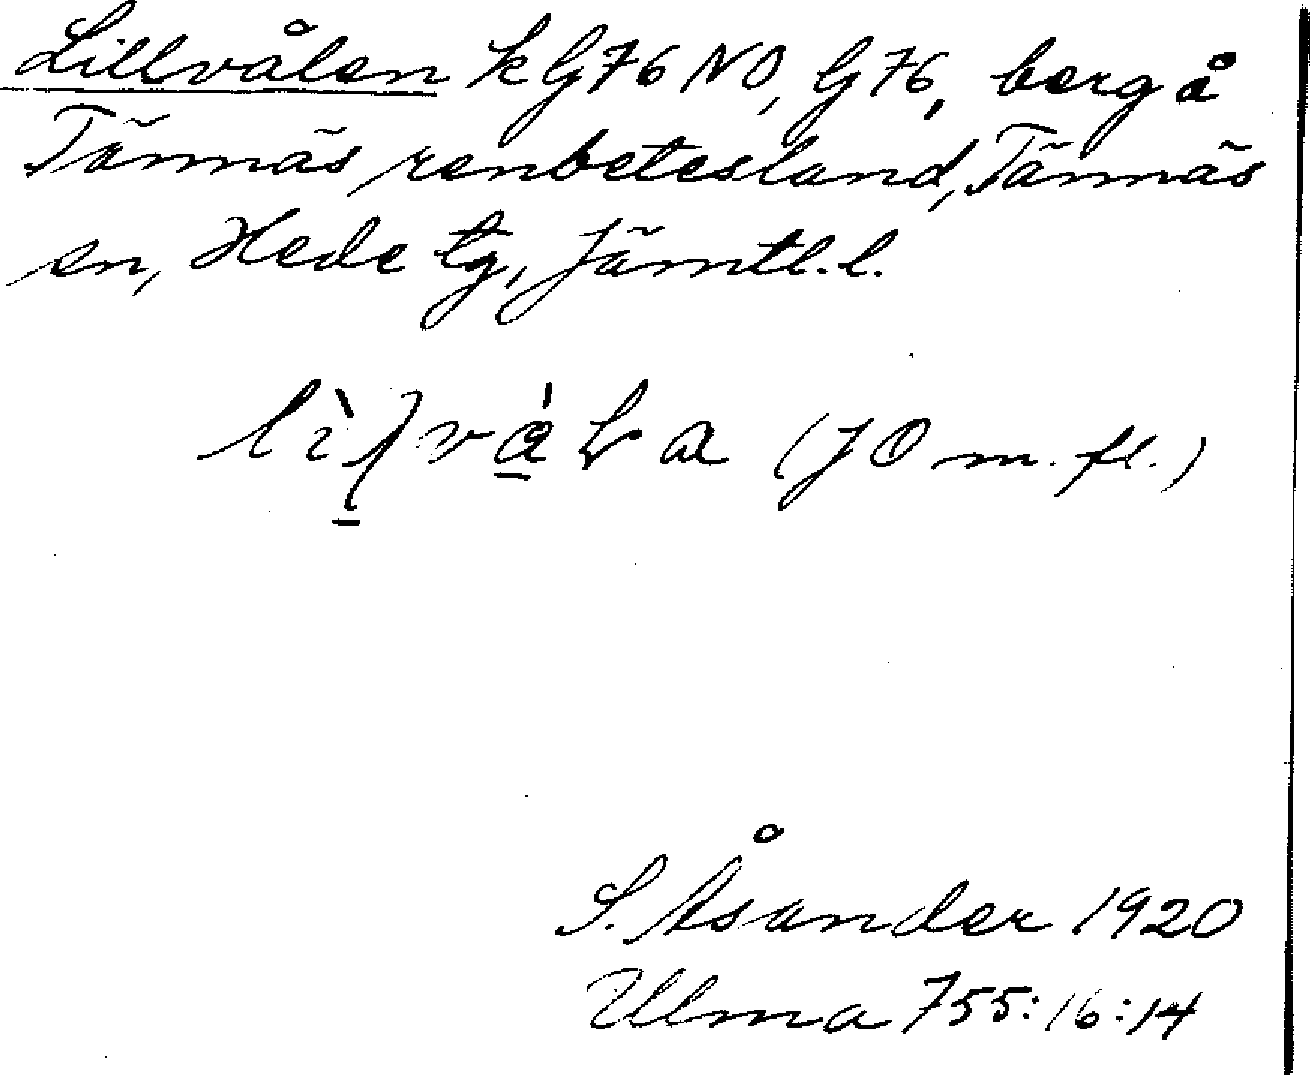 Lillvålen k G76 NO, G76, berg å
Tännäs renbetesland, Tännäs
sn, Hede tg, Jämtl. l.
(JO m. fl.)
S. Åsander 1920
Ulma 755:16:14